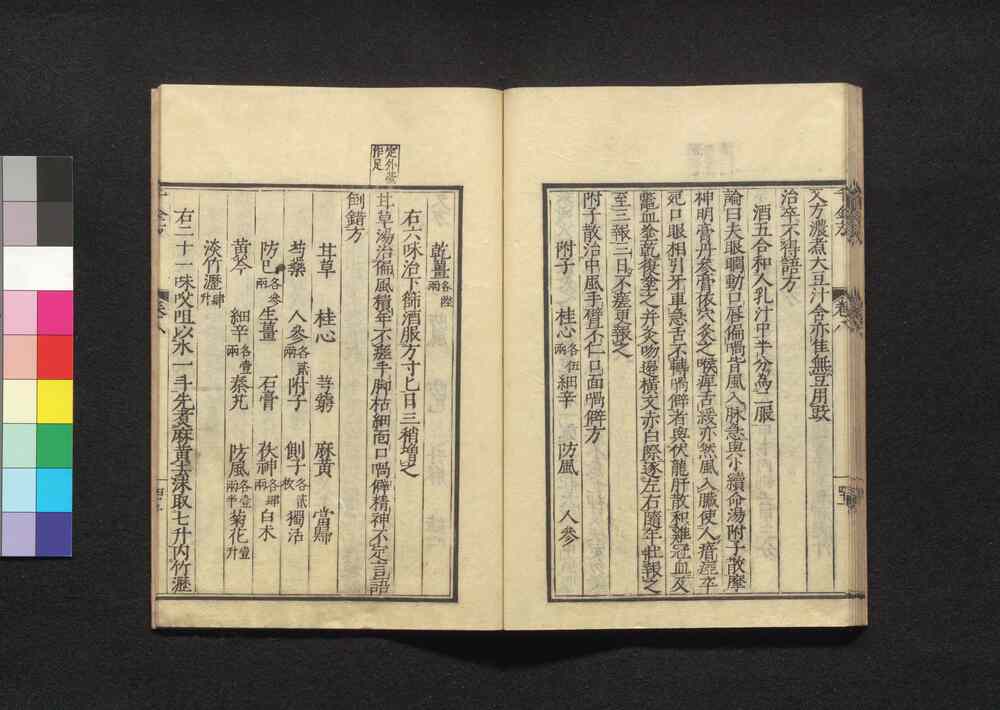 又方濃煮大豆汁含亦佳無豆用豉
治卒不得語方
酒五合和人乳汁中半分為二服
論曰夫眼瞤動口脣偏喎皆風入脉急與小續命湯附子散摩
神明膏丹參膏依穴灸之喉痹舌緩亦然風入臓使人瘖瘂卒
死口眼相引牙車急舌不轉喎僻者與伏龍肝散和雞冠血及
鼈血塗乾復塗之并灸吻邊橫文赤白際逐左右隨年壯報之
至三報三日不差更報之
附子散治中風手臂不仁口面喎僻方
附子 桂心各伍兩 細辛 防風 人參
卷八
乾薑各陸兩
右六味治下篩酒服方寸匕日三稍增之
定外臺作足
甘草湯治偏風積年不差手脚枯細面口喎僻精神不定言語
倒錯方
甘草 桂心 芎藭 麻黃 當歸
芍藥 人參各貳兩 附子 側子各貳枚 獨活
防己各參兩 生薑 石膏 茯神各肆兩 白术
黃芩 細辛各壹兩 秦艽 防風各壹兩半 菊花壹升
淡竹瀝肆升
右二十一味㕮咀以水一斗先煮麻黃去沫取七升內竹瀝
卷八